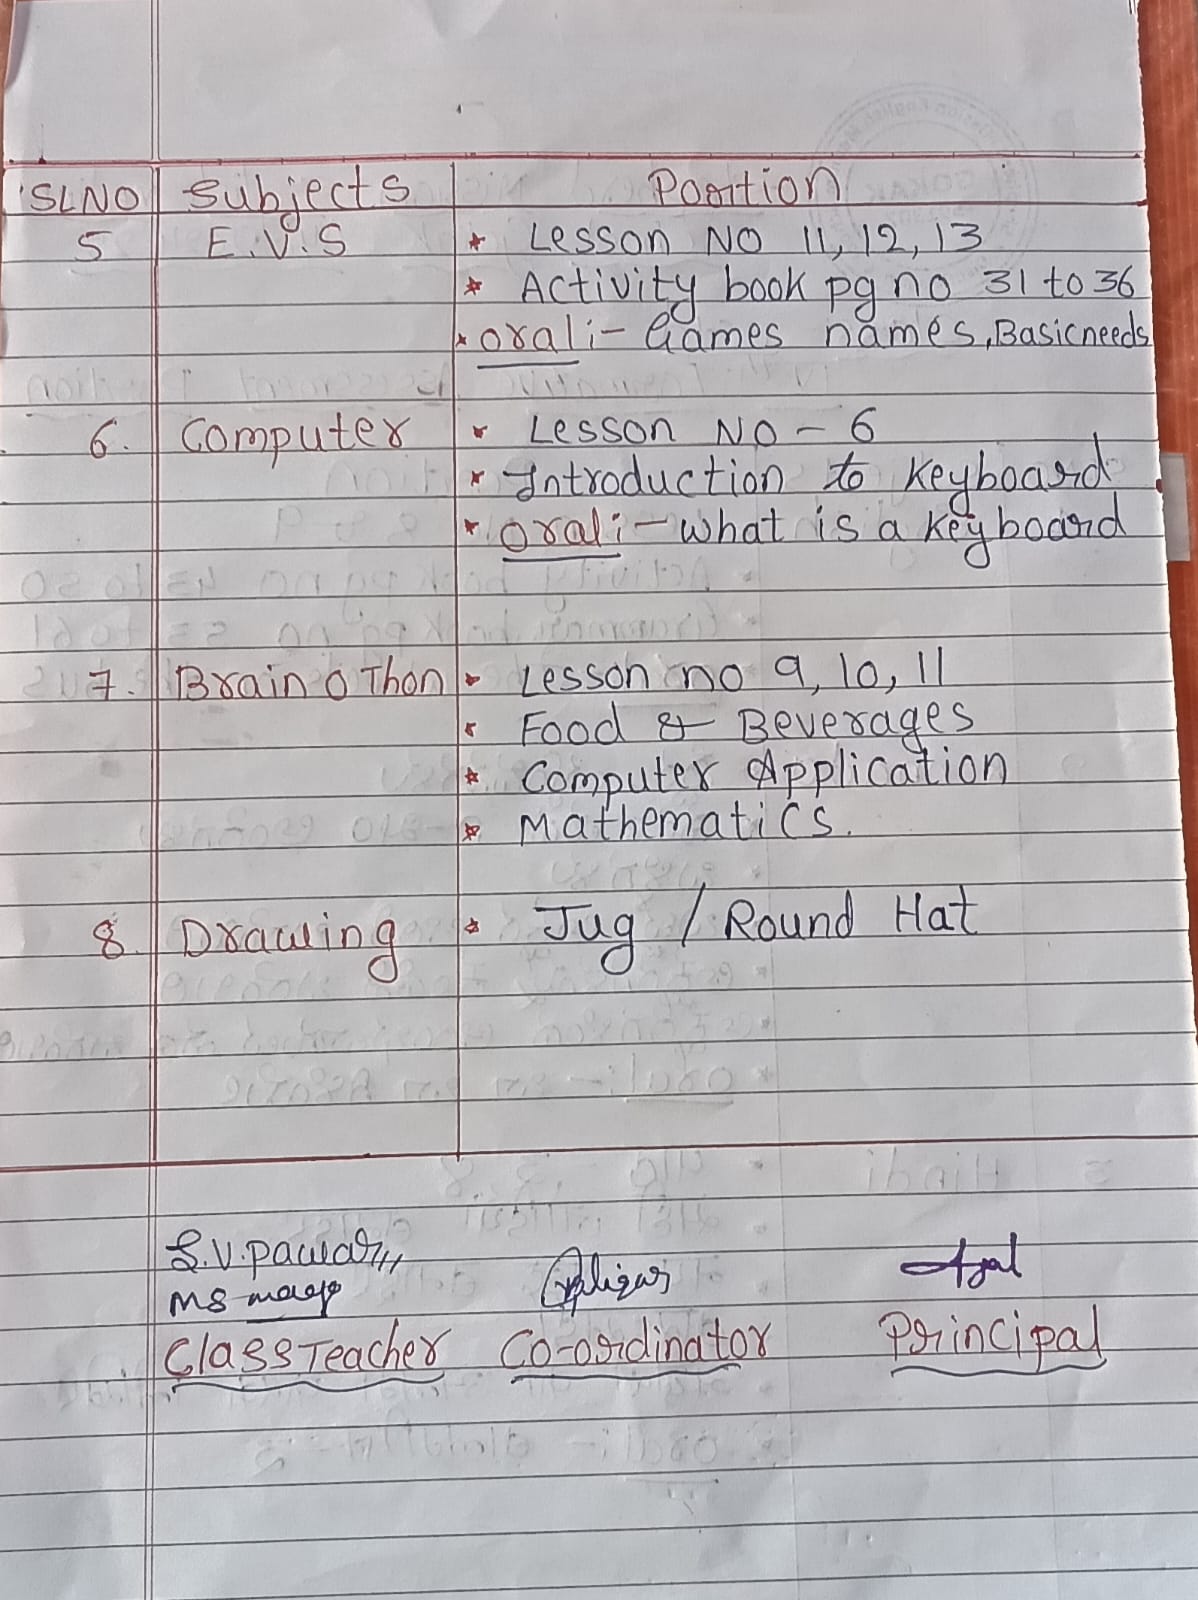 SLNO Subjects Portion
5 E.V.S * Lesson NO 11, 12, 13
* Activity book pg no 31 to 36
* oral:- Games names, Basic needs
6. Computer * Lesson NO - 6
* Introduction to Keyboard
* oral:- what is a keyboard
7. Brain O Thon * Lesson no 9, 10, 11
* Food & Beverages
* Computer Application
* Mathematics.
8. Drawing * Jug / Round Hat
S.V. Pawar
Class Teacher Co-ordinator Principal